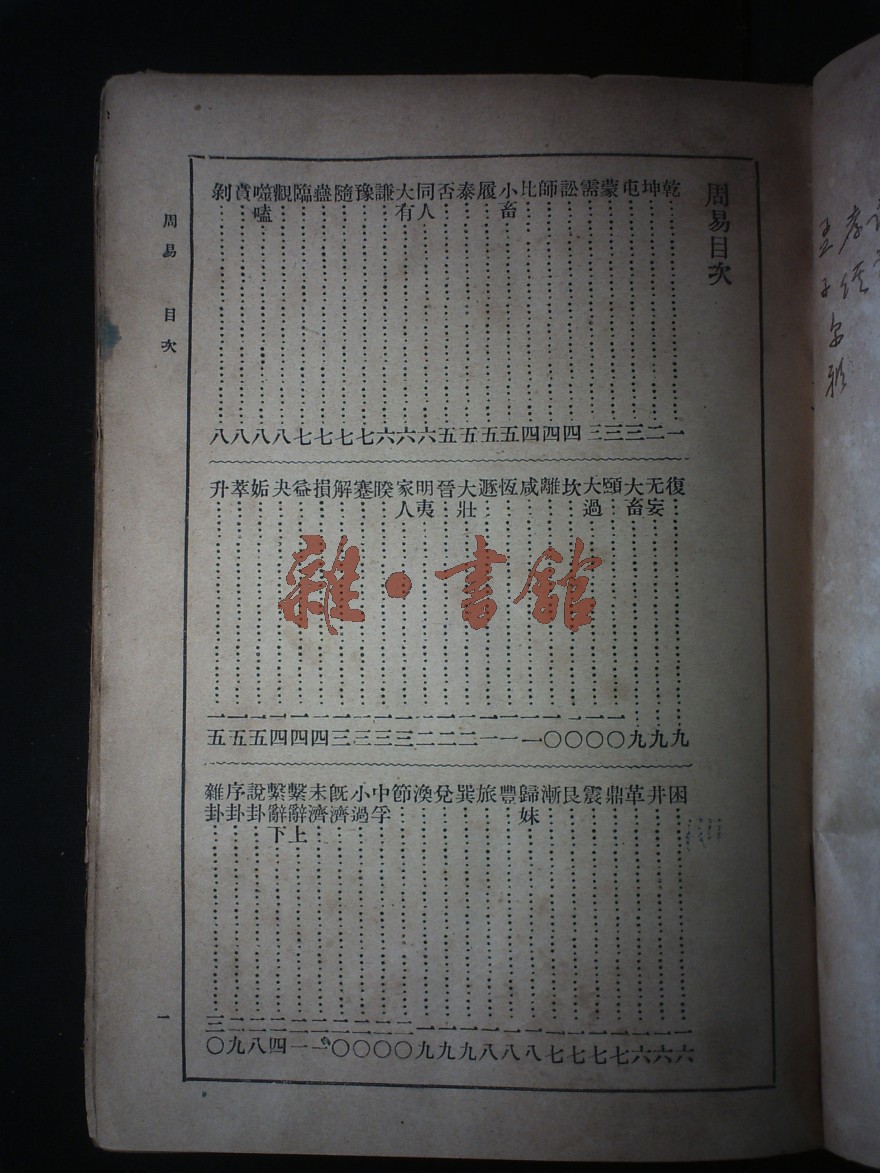 周易目次
乾⋯⋯一
坤⋯⋯二
屯⋯⋯三
蒙⋯⋯三
需⋯⋯三
訟⋯⋯四
師⋯⋯四
比⋯⋯四
小畜⋯⋯五
履⋯⋯五
泰⋯⋯五
否⋯⋯五
同人⋯⋯六
大有⋯⋯六
謙⋯⋯六
豫⋯⋯七
隨⋯⋯七
蠱⋯⋯七
臨⋯⋯七
觀⋯⋯八
噬嗑⋯⋯八
賁⋯⋯八
剝⋯⋯八
復⋯⋯九
无妄⋯⋯九
大畜⋯⋯九
頤⋯⋯一〇
大過⋯⋯一〇
坎⋯⋯一〇
離⋯⋯一〇
咸⋯⋯一一
恆⋯⋯一一
遯⋯⋯一一
大壯⋯⋯一二
晉⋯⋯一二
明夷⋯⋯一二
家人⋯⋯一三
睽⋯⋯一三
蹇⋯⋯一三
解⋯⋯一三
損⋯⋯一四
益⋯⋯一四
夬⋯⋯一四
姤⋯⋯一五
萃⋯⋯一五
升⋯⋯一五
困⋯⋯一六
井⋯⋯一六
革⋯⋯一六
鼎⋯⋯一七
震⋯⋯一七
艮⋯⋯一七
漸⋯⋯一七
歸妹⋯⋯一八
豐⋯⋯一八
旅⋯⋯一八
巽⋯⋯一九
兌⋯⋯一九
渙⋯⋯一九
節⋯⋯二〇
中孚⋯⋯二〇
小過⋯⋯二〇
既濟⋯⋯二〇
未濟⋯⋯二一
繫辭上⋯⋯二一
繫辭下⋯⋯二四
說卦⋯⋯二八
序卦⋯⋯二九
雜卦⋯⋯三〇
周易 目次
一
雜·書館